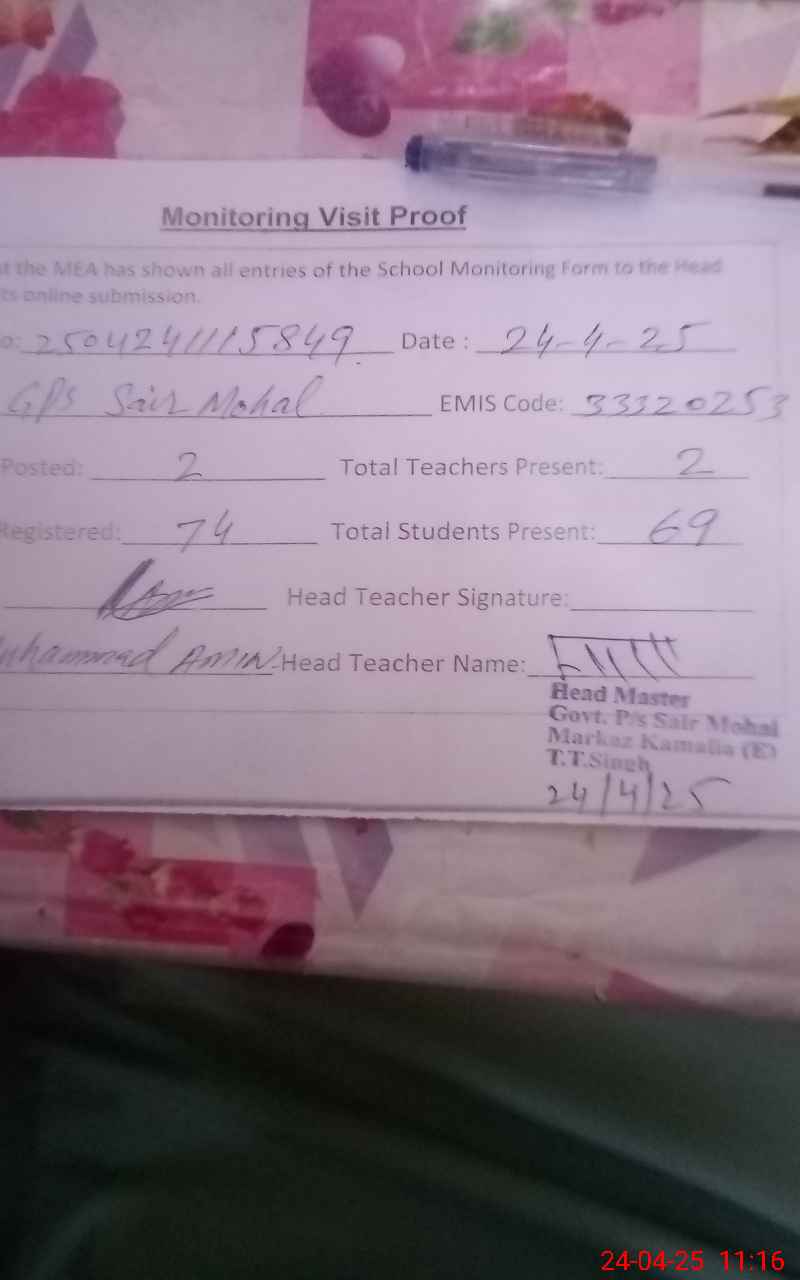 Monitoring Visit Proof
t the MEA has shown all entries of the School Monitoring Form to the Head
ts online submission.
o: 2504241115849 Date : 24-4-25
GPS Sair Mohal EMIS Code: 33320253
Posted: 2 Total Teachers Present: 2
Registered: 74 Total Students Present: 69
Head Teacher Signature:
uhammad AMIN Head Teacher Name:
Head Master
Govt. P/s Sair Mohal
Markaz Kamalia (E)
T.T.Singh
24/4/25
24-04-25 11:16